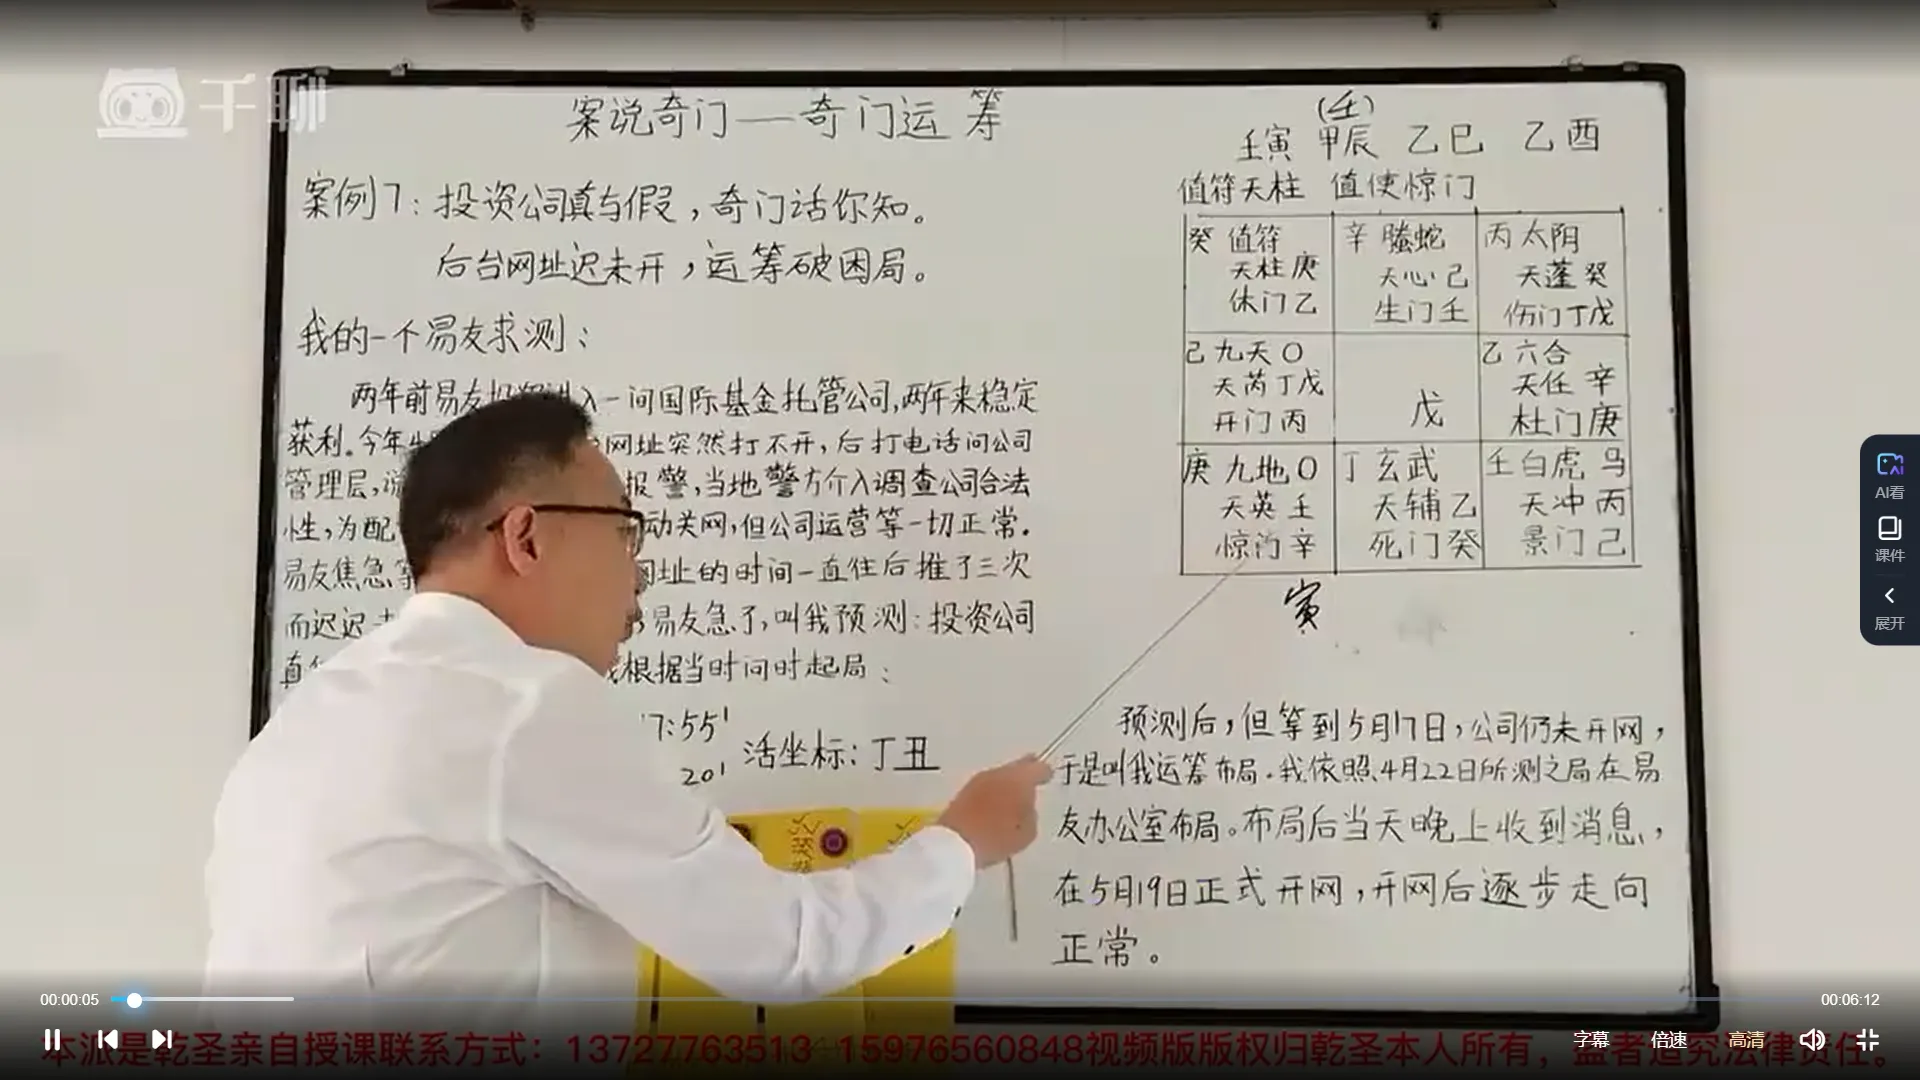 千聊
案说奇门——奇门运筹
案例7：投资公司真与假，奇门话你知。
后台网址迟未开，运筹破困局。
我的一个易友求测：
两年前易友投资进入一间国际基金托管公司，两年来稳定
获利。今年4 网址突然打不开，后打电话问公司
管理层，说 报警，当地警方介入调查公司合法
性，为配 动关网，但公司运营等一切正常。
易友焦急等 网址的时间一直往后推了三次
而迟迟 易友急了，叫我预测：投资公司
真 我根据当时问时起局：
7:55'
20' 活坐标：丁丑
(壬)
壬寅 甲辰 乙巳 乙酉
值符天柱 值使惊门
癸 值符 辛 螣蛇 丙 太阴
天柱 庚 天心 己 天蓬 癸
休门 乙 生门 壬 伤门 丁戊
己 九天 〇 乙 六合
天芮 丁戊 天任 辛
开门 丙 戊 杜门 庚
庚 九地 〇 丁 玄武 壬 白虎 马
天英 壬 天辅 乙 天冲 丙
惊门 辛 死门 癸 景门 己
寅
预测后，但等到5月17日，公司仍未开网，
于是叫我运筹布局。我依照4月22日所测之局在易
友办公室布局。布局后当天晚上收到消息，
在5月19日正式开网，开网后逐步走向
正常。
AI看
课件
展开
00:00:05
00:06:12
字幕 倍速 高清
本派是乾圣亲自授课联系方式：13727763513 15976560848视频版版权归乾圣本人所有，盗者追究法律责任。